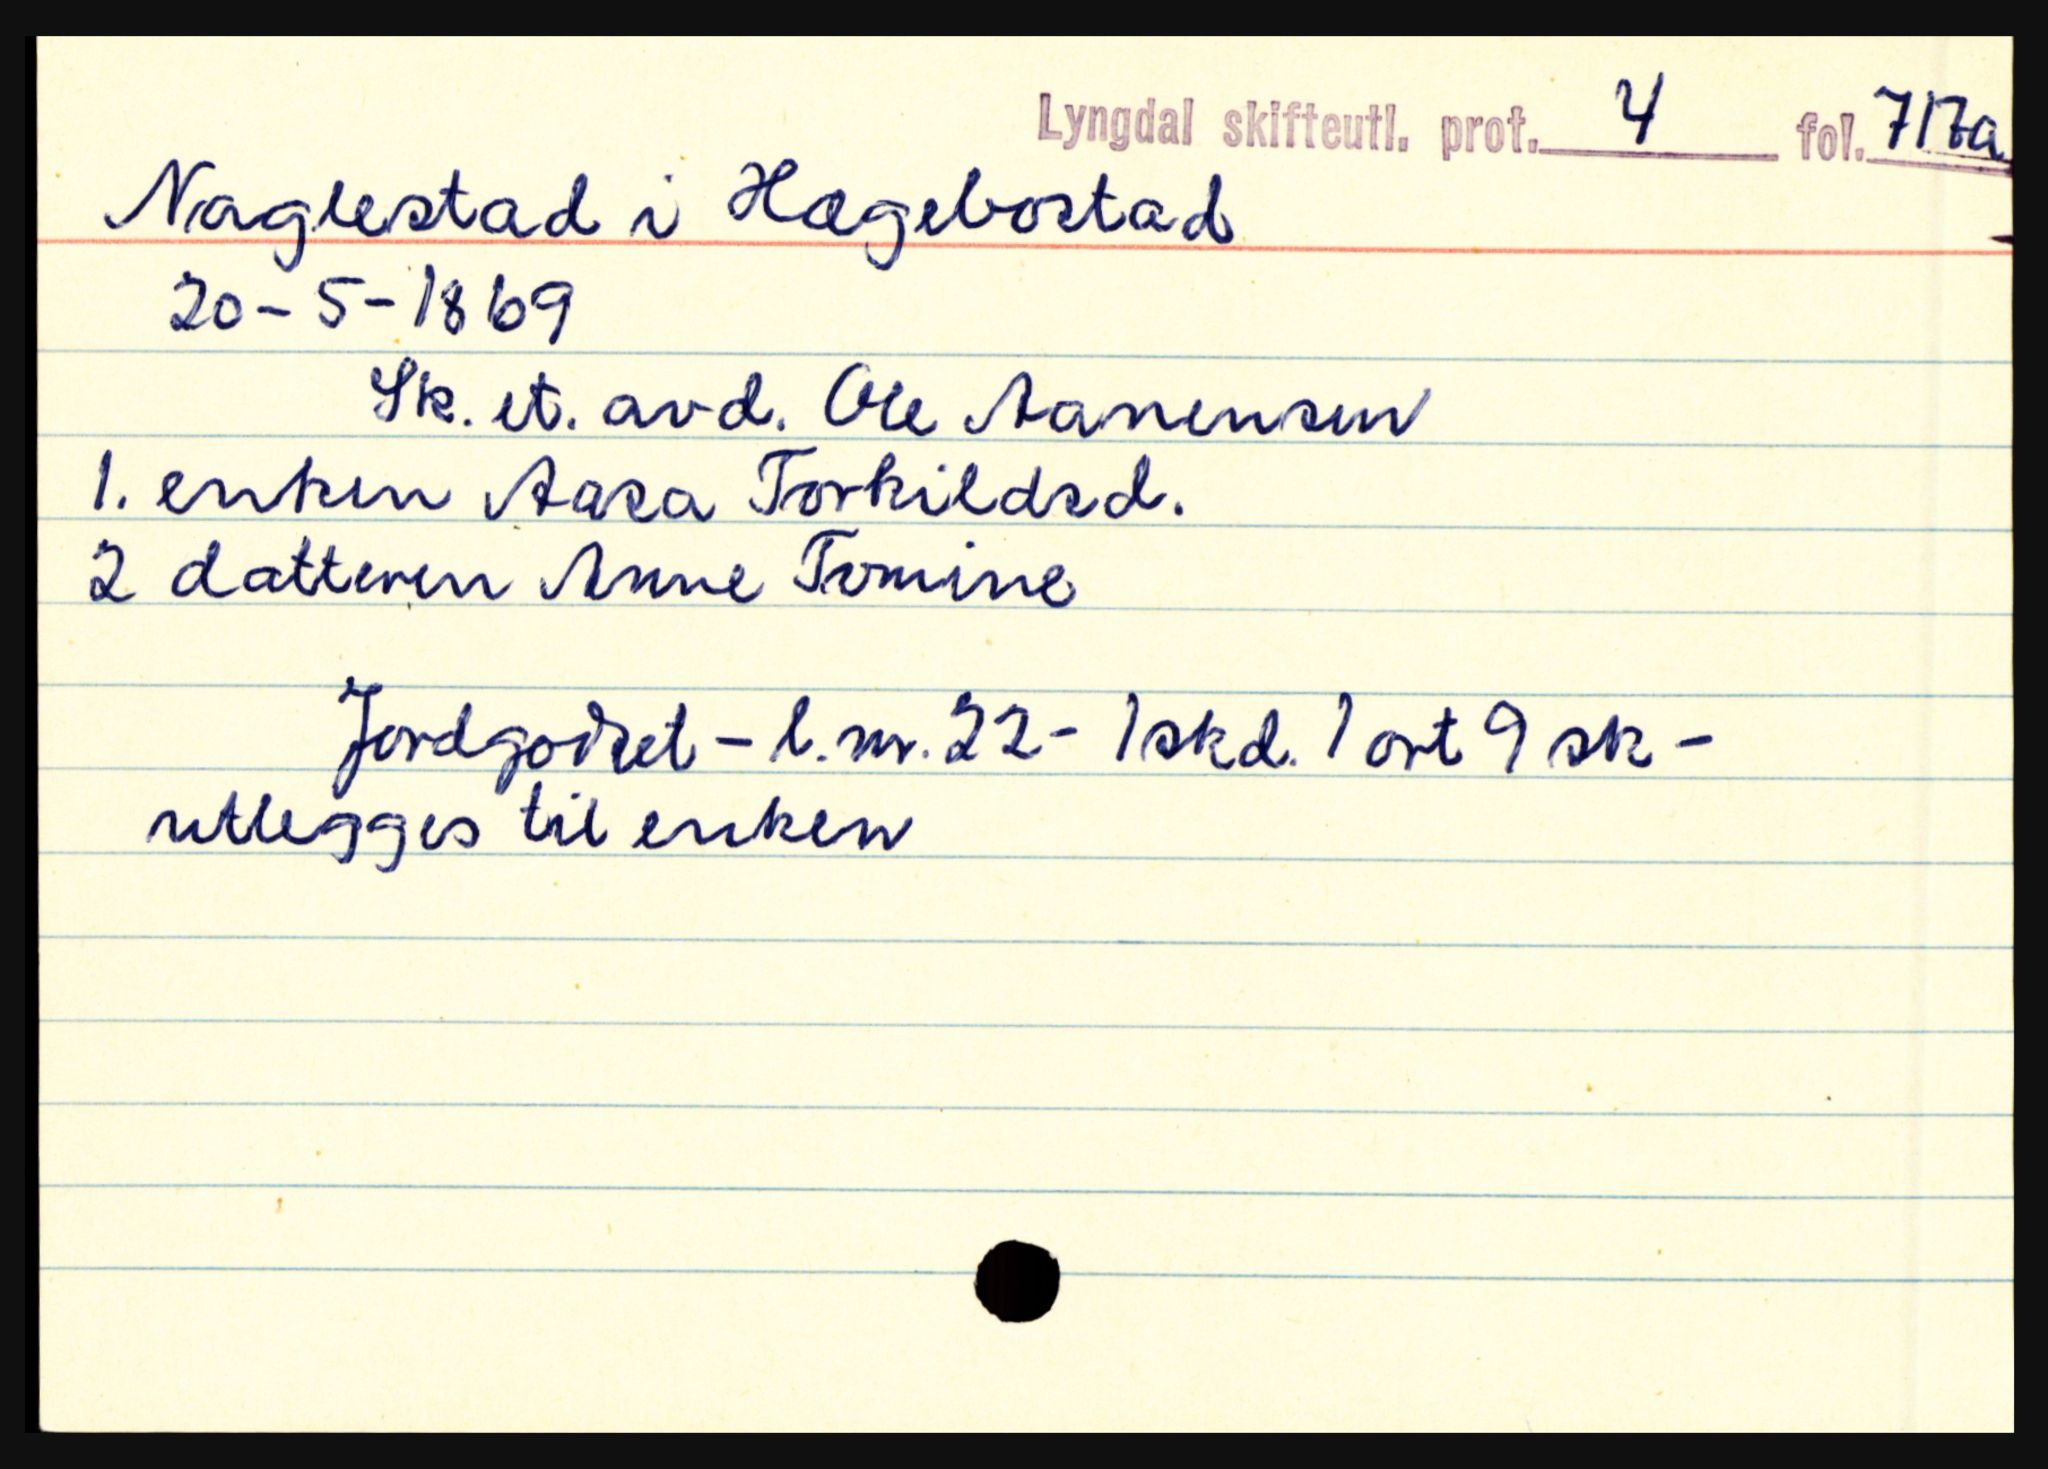 Lyngdal skifteutl. prot. 4 fol. 717a
Naglestad i Hægebostad
20-5-1869
Sk. et. avd. Ole Aanensen
1. enken Aasa Torkildsd.
2 datteren Anne Tomine
Jordgodset - l. nr. 22 - 1 skd. 1 ort 9 sk -
utlegges til enken